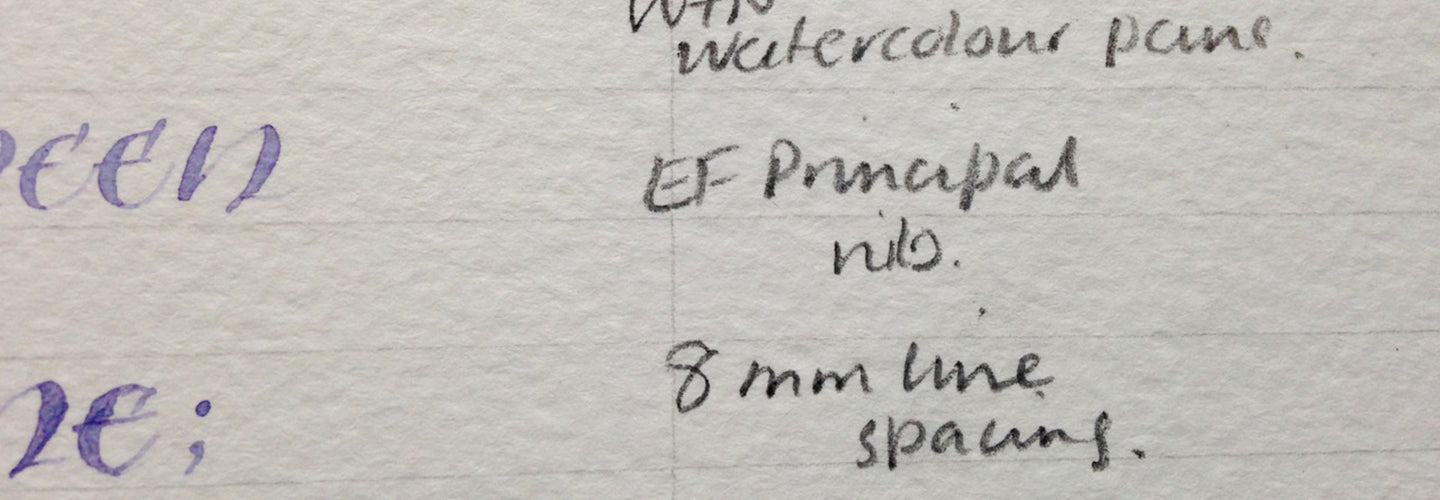 with
watercolour paint.
EF Principal
nib.
8 mm line
spacing.